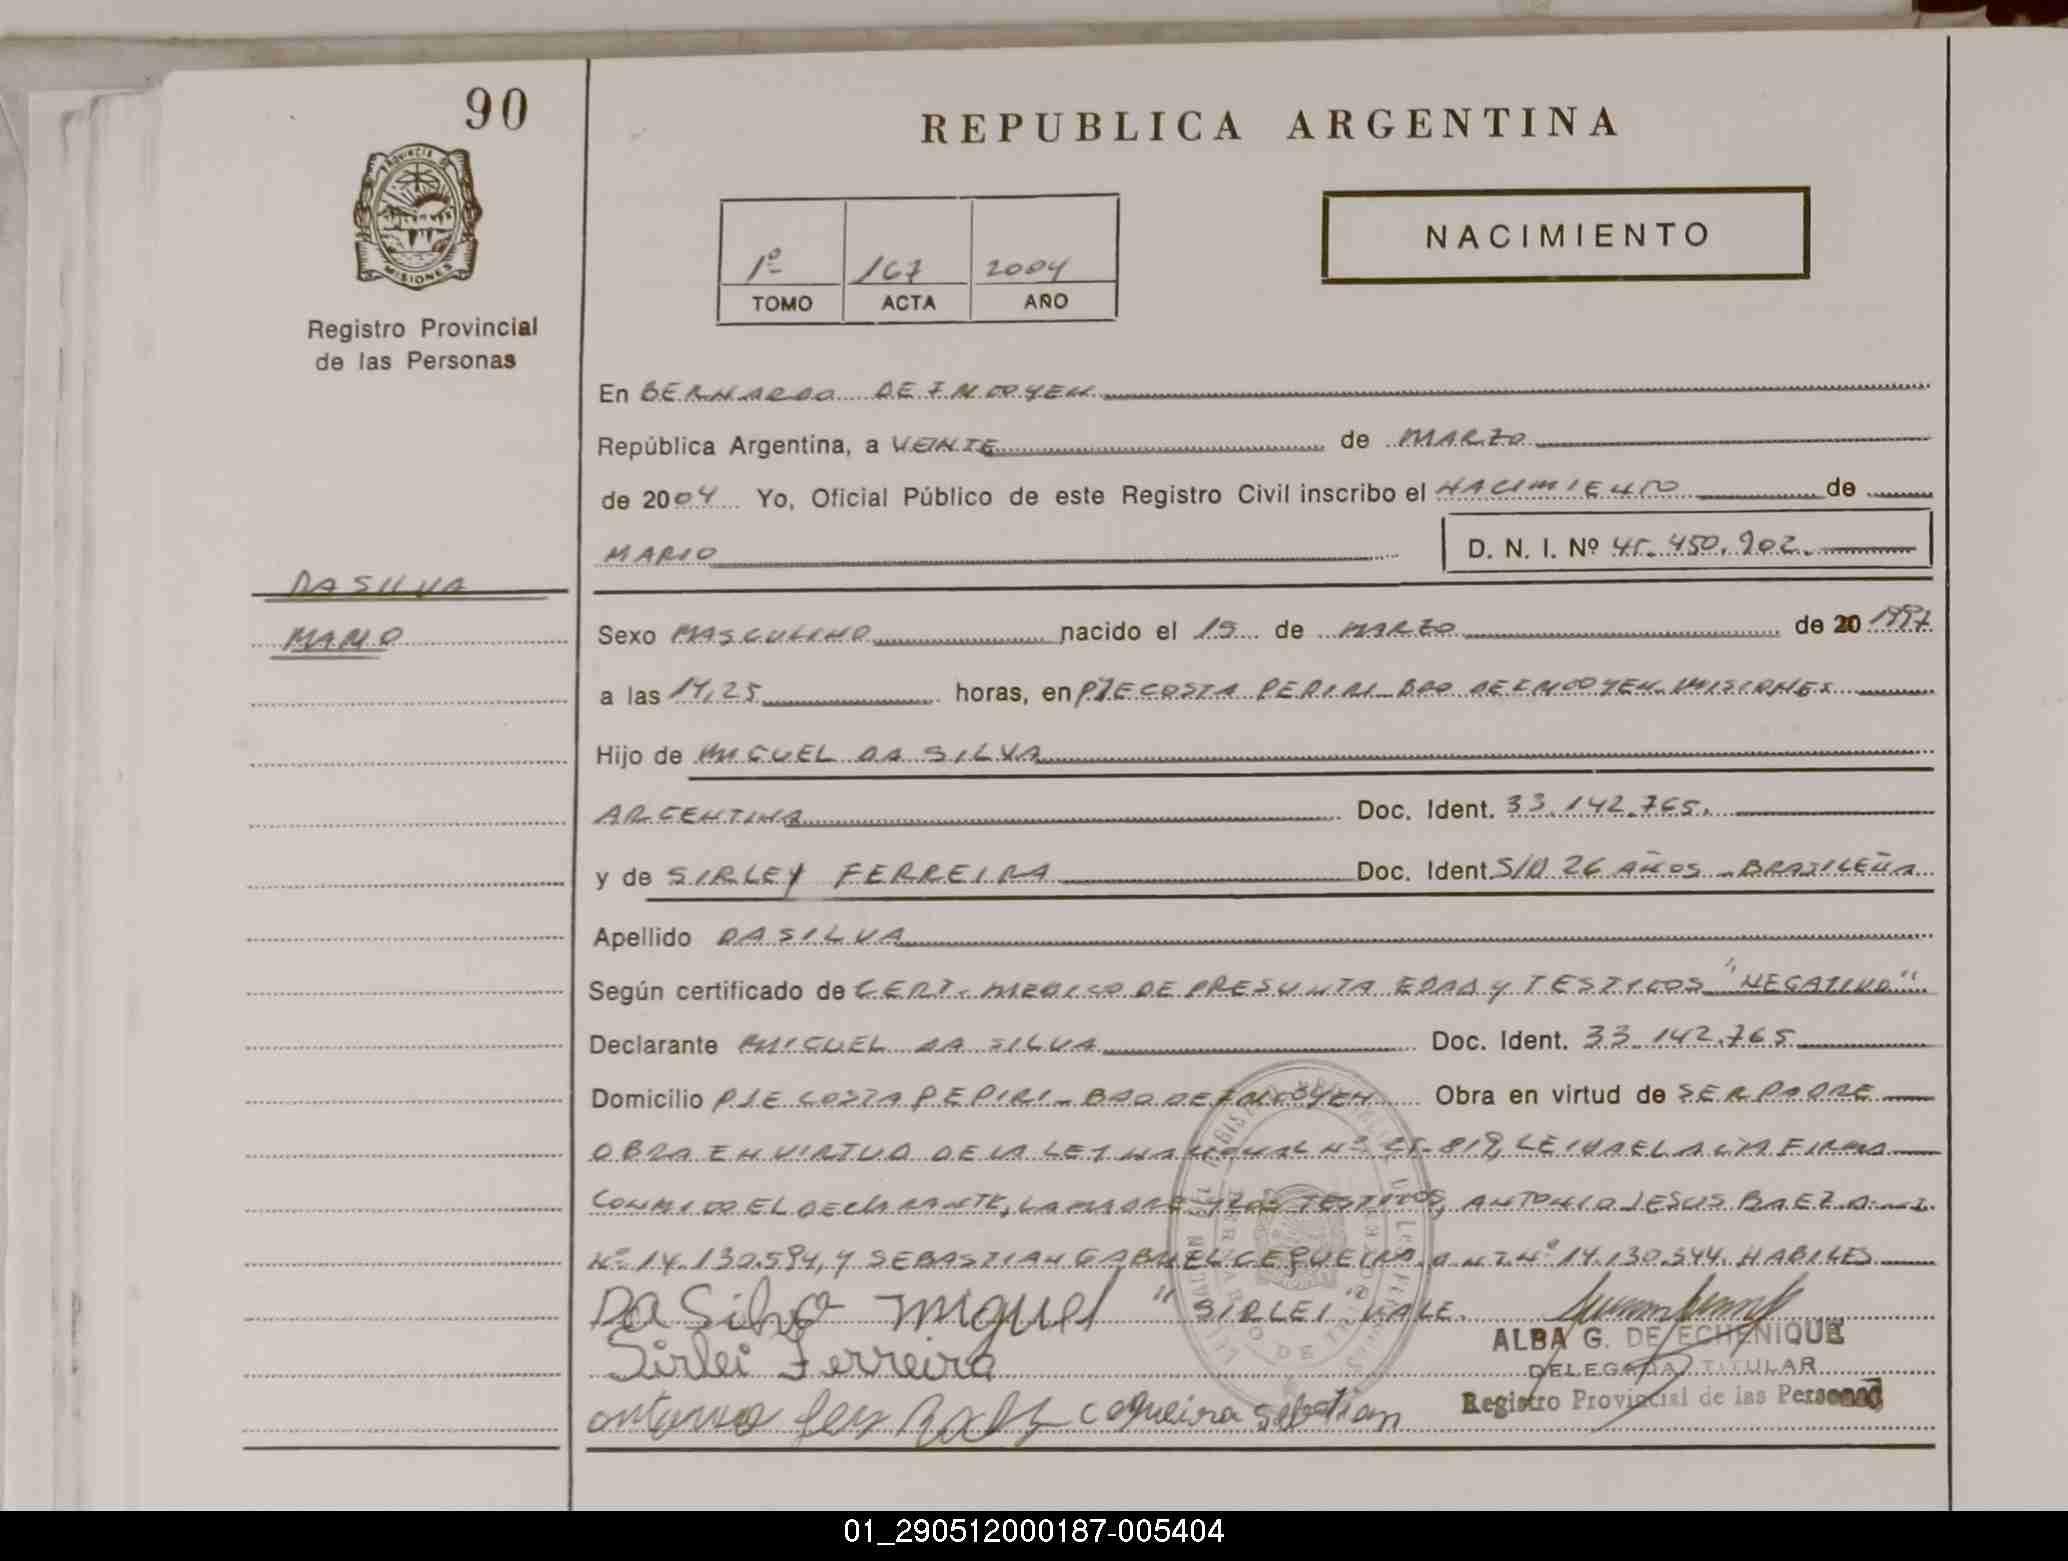 90
REPUBLICA ARGENTINA
PROVINCIA DE
MISIONES
Registro Provincial
de las Personas
NACIMIENTO
1º 167 2004
TOMO ACTA AÑO
En BERNARDO DE IRIGOYEN
República Argentina, a VEINTE de MARZO
de 2004 Yo, Oficial Público de este Registro Civil inscribo el NACIMIENTO de
MARIO D. N. I. Nº 45.450.902.
DA SILVA
MARIO
Sexo MASCULINO nacido el 19 de MARZO de 20 1997
a las 14,25 horas, en PJE COSTA PEPIRI - BDO DE IRIGOYEN. MISIONES
Hijo de MIGUEL DA SILVA
ARGENTINA Doc. Ident. 33.142.765.
y de SIRLEY FERREIRA Doc. Ident S/D 26 AÑOS - BRASILEÑA
Apellido DA SILVA
Según certificado de CERT. MEDICO DE PRESUNTA EDAD y TESTIGOS "NEGATIVO"
Declarante MIGUEL DA SILVA Doc. Ident. 33.142.765
Domicilio PJE COSTA PEPIRI - BDO DE IRIGOYEN Obra en virtud de SER PADRE
OBRA EN VIRTUD DE LA LEY NACIONAL Nº 25.819, LEIDA EL ACTA FIRMA
CONMIGO EL DECLARANTE, LA MADRE Y LOS TESTIGOS, ANTONIO JESUS BAEZ D.N.I.
Nº 14.130.594, Y SEBASTIAN GABRIEL CEQUEIRA D.N.I. Nº 14.130.544. HABILES
Da Silva Miguel "SIRLEI" VALE.
Sirlei Ferreira
ALBA G. DE ECHENIQUE
DELEGADA TITULAR
Registro Provincial de las Personas
antonio Jesus Baez Cequeira Sebastian
01_290512000187-005404